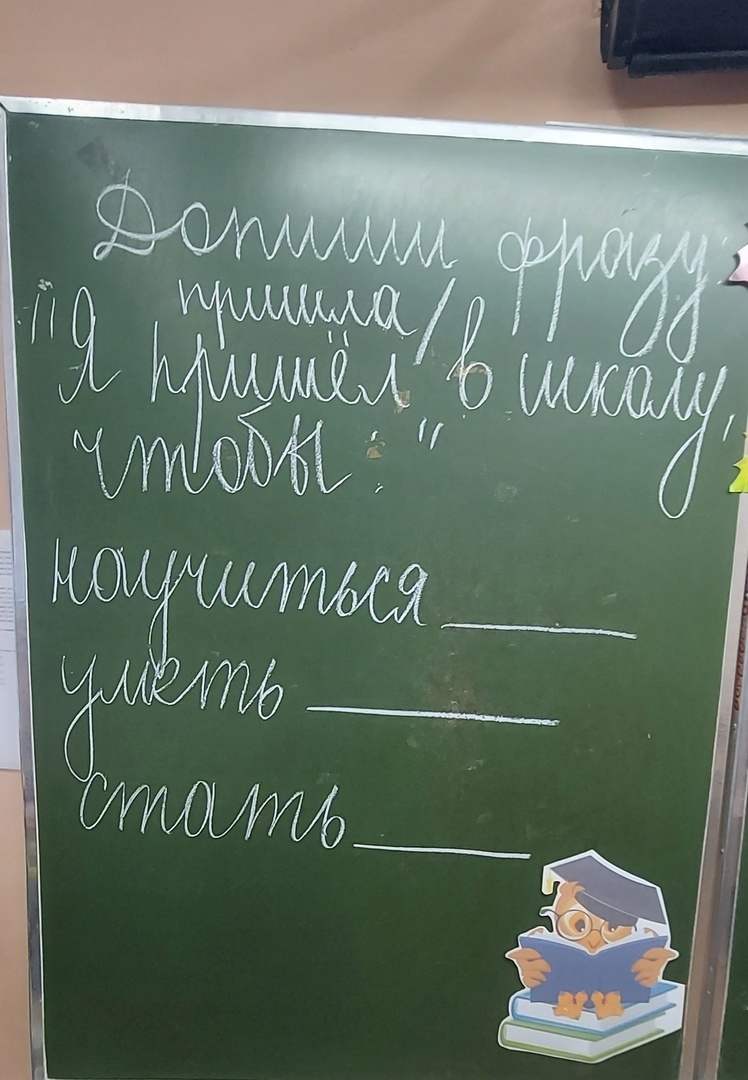 Допиши фразу:
пришла/
"Я пришёл в школу,
чтобы: "
научиться ______
уметь ______
стать ______